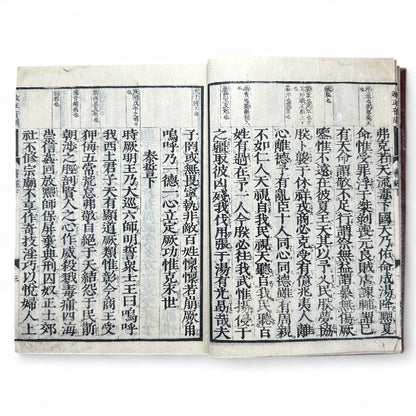 弗克若天流毒下國天乃佑命成湯降黜夏
命惟受罪浮于桀剝喪元良賊虐諫輔謂己
有天命謂敬不足行謂祭無益謂暴無傷厥
鑒惟不遠在彼夏王天其以予乂民朕夢協
朕卜襲于休祥戎商必克受有億兆夷人離
心離德予有亂臣十人同心同德雖有周親
不如仁人天視自我民視天聽自我民聽百
姓有過在予一人今朕必往我武惟揚侵于
之疆取彼凶殘我伐用張于湯有光勗哉夫
子罔或無畏寧執非敵百姓懍懍若崩厥角
嗚呼乃一德一心立定厥功惟克永世
泰誓下
時厥明王乃大巡六師明誓衆士王曰嗚呼
我西土君子天有顯道厥類惟彰今商王受
狎侮五常荒怠弗敬自絕于天結怨于民斮
朝涉之脛剖賢人之心作威殺戮毒痡四海
崇信姦回放黜師保屏棄典刑囚奴正士郊
社不修宗廟不享作奇技淫巧以悅婦人上